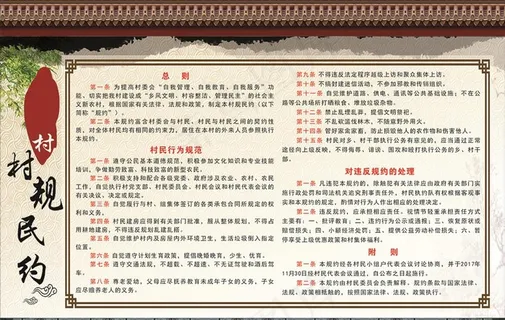 村
村规民约
总 则
第一条 为提高村委会“自我管理、自我教育、自我服务”功
能，切实把我村建设成“乡风文明、村容整洁、管理民主”的社会主
义新农村，根据国家有关法律、法规和政策，制定本村规民约（以下
简称“规约”）。
第二条 本规约宜合村委会与村民、村民与村民之间的契约性
质，对全体村民均有相同的约束力，居住在本村的外来人员参照执行
本规约。
村民行为规范
第一条 遵守公民基本道德规范，积极参加文化知识和专业技能
培训，争做勤劳致富、科技致富的新型农民。
第二条 积极支持和配合各级党委、政府涉及农业、农村、农民
工作，自觉执行党支部、村民委员会、村民会议和村民代表会议的
有关决议、决定或规定。
第三条 自觉履行与村、组集体签订的各类承包合同所规定的权
利和义务。
第四条 村民建房应得到有关部门批准，服从整体规划，不得占
用耕地建房，不得违反规划乱建乱搭。
第五条 自觉维护村内及房屋内外环境卫生，生活垃圾倒入指定
位置。
第六条 自觉遵守计划生育政策，提倡晚婚晚育，少生，优育。
第七条 遵守交通法规，不超载、不超速、不无证驾驶和酒后驾
车。
第八条 尊老爱幼，父母应尽抚养教育未成年子女的义务，子女
应尽赡养老人的义务。
第九条 不得违反法定程序越级上访和聚众集体上访。
第十条 不搞封建迷信活动，不参加邪教和传销组织。
第十一条 自觉维护道路、供电、通信等公共基础设施；不在公
路等公共场所打晒粮食，堆放垃圾杂物。
第十二条 禁止乱埋乱葬，提倡文明祭祀。
第十三条 不乱砍滥伐林木，不随意野外用火。
第十四条 管好家禽家畜，防止损毁他人的农作物和伤害他人。
第十五条 村民对乡、村干部执行公务有意见的，应当通过正常
途径向上级反映，不得侮辱、诽谤、围攻和殴打执行公务的乡、村干
部。
对违反规约的处理
第一条 凡违犯本规约的，除触犯有关法律应由政府有关部门实
施行政处罚和司法机关追究刑事责任外，村民执约队有权根据客观事
实和本规约的规定，酌情对行为人作出相应的处理决定。
第二条 违反规约，应承担相应责任，视情节轻重承担责任方式
主要有：一、批评教育；二、违约行为公示或通报；三、恢复原状或
赔偿损失；四、小额经济处罚；五、提供公益劳动补偿损失；六、暂
停享受上级优惠政策和村集体福利。
附 则
第一条 本规约经各村民小组户代表会议讨论协商，并于2017年
11月30日经村民代表会议通过，自公布之日起施行。
第二条 本规约由村民委员会负责解释，规约条款与国家法律、
法规、政策相抵触的，按照国家法律、法规、政策执行。